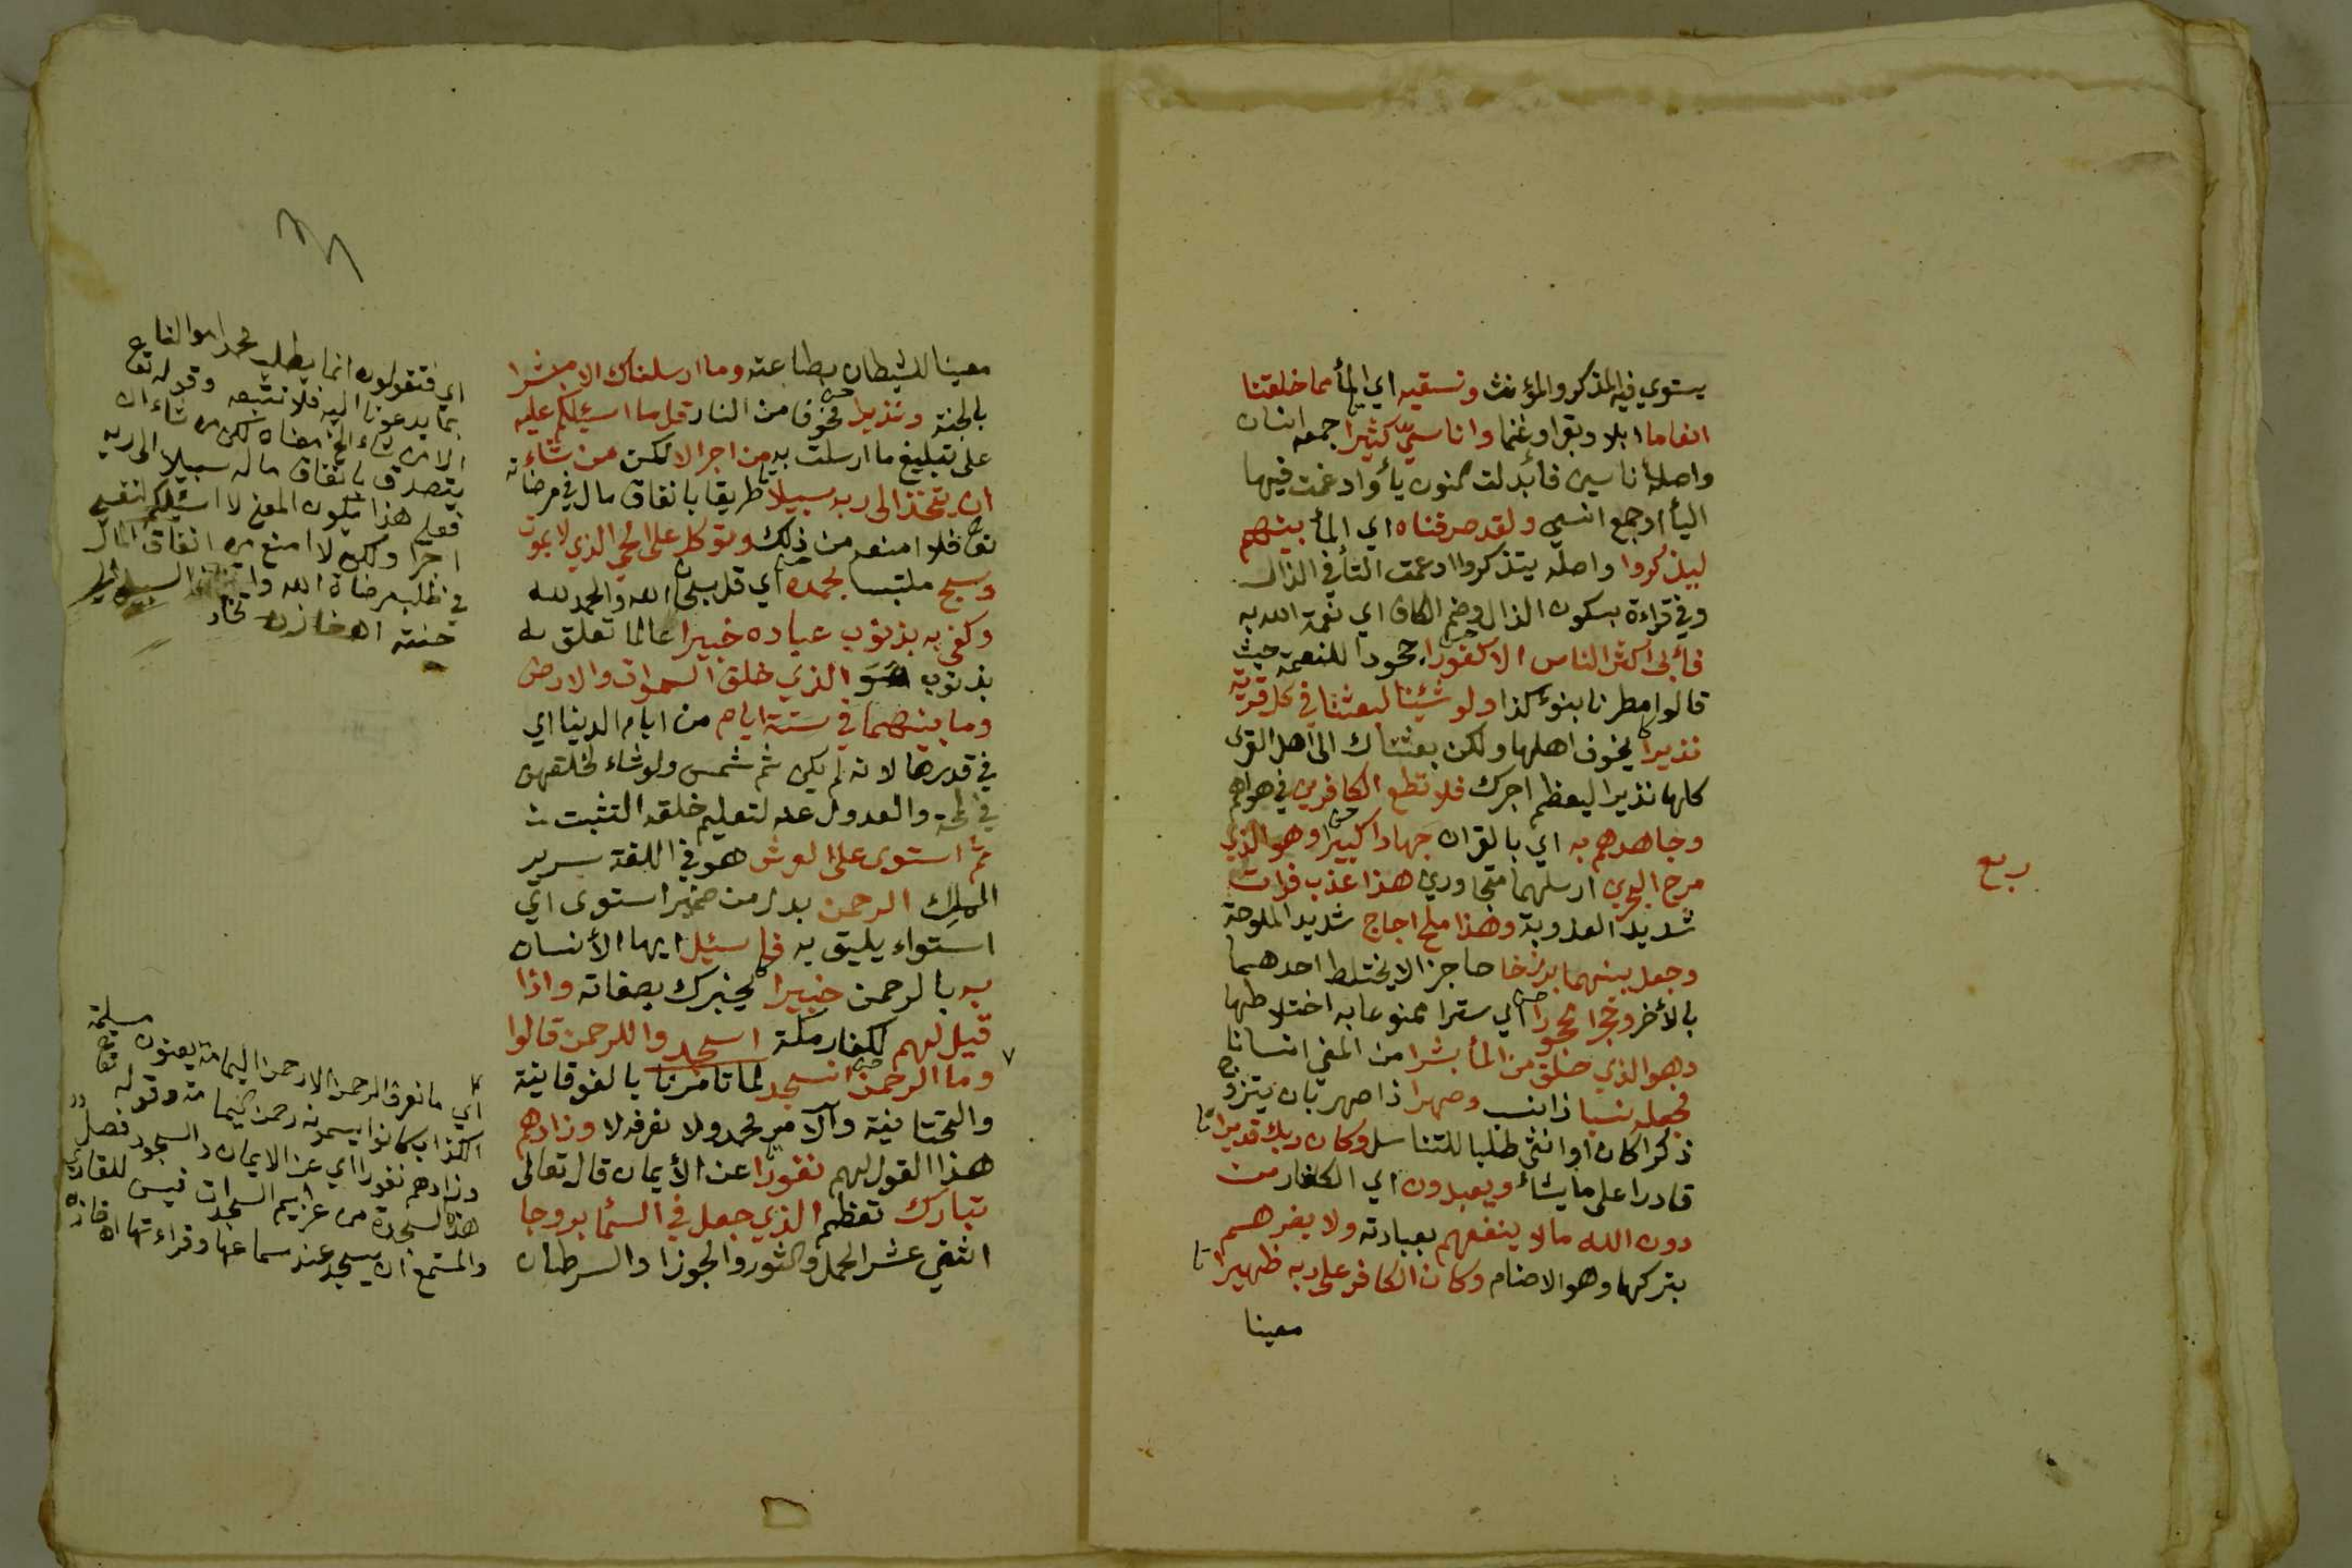 يستوي فيه المذكر والمؤنث ونسقيه اي المأ مما خلقنا
انعاما ابلا وبقرا وغنما واناسيّ كثيرا جمع انسان
واصله اناسين فأبدلت النون يأ وادغمت فيها
اليأ او جمع انسي ولقد صرفناه اي المأ بينهم
ليذكروا واصله يتذكروا ادغمت التأ في الذال
وفي قراءة بسكون الذال وضم الكاف اي نعمة الله به
فأبى اكثر الناس الا كفورا جحودا للنعمة حيث
قالوا مطرنا بنوء كذا ولو شئنا لبعثنا في كل قرية
نذيرا يخوف اهلها ولكن بعثناك الى اهل القرى
كلها نذيرا ليعظم اجرك فلا تطع الكافرين في هواهم
وجاهدهم به اي بالقران جهادا كبيرا وهو الذي
مرج البحرين ارسلهما متجاورين هذا عذب فرات
شديد العذوبة وهذا ملح اجاج شديد الملوحة
وجعل بينهما برزخا حاجزا لا يختلط احدهما
بالأخر وحجرا محجورا اي سترا ممنوعا به اختلاطهما
وهو الذي خلق من المأ بشرا من المني انسانا
فجعله نسبا ذا نسب وصهرا ذا صهر بان يتزوج
ذكرا كان او انثى طلبا للتناسل وكان ربك قديرا
قادرا على ما يشأ ويعبدون اي الكفار من
دون الله ما لا ينفعهم بعبادته ولا يضرهم
بتركها وهو الاصنام وكان الكافر على ربه ظهيرا
معينا
ربع
معينا للشيطان بطاعته وما ارسلناك الا مبشرا
بالجنة ونذيرا مخوفا من النار قل ما اسئلكم عليه
على تبليغ ما ارسلت به من اجر الا لكن من شاء
ان يتخذ الى ربه سبيلا طريقا بانفاق مال في مرضاته
تعالى فلا امنعه من ذلك وتوكل على الحي الذي لا يموت
وسبح ملتبسا بحمده اي قل سبحان الله والحمد لله
وكفى به بذنوب عباده خبيرا عالما تعلق به
بذنوب هو الذي خلق السموات والارض
وما بينهما في ستة ايام من ايام الدنيا اي
في قدرها لانه لم يكن ثم شمس ولو شاء لخلقهن
في لمحة والعدول عنه لتعليم خلقه التثبت
ثم استوى على العرش هو في اللغة سرير
الملك الرحمن بدل من ضمير استوى اي
استواء يليق به فاسئيل ايها الأنسان
به بالرحمن خبيرا يخبرك بصفاته واذا
قيل لهم لكفار مكة اسجدوا للرحمن قالوا
وما الرحمن انسجد لما تامرنا بالفوقانية
والتحتانية والآمر محمد ولا نعرفه لا وزادهم
هذا القول لهم نفورا عن الأيمان قال تعالى
تبارك تعظم الذي جعل في السمأ بروجا
اثني عشر الحمل والثور والجوزا والسرطان
اي فتقولون انما يطلب محمد اموالنا
بما يدعونا اليه فلا نتبعه وقوله تعالى
الا من شاء الخ معناه لكن من شاء ان
يتصدق بانفاق ماله سبيلا الى ربه
فعلى هذا يكون المعنى لا اسئلكم لنفسي
اجرا ولكن لا امنع من انفاق المال
في طلب مرضاة الله السبيل الى
جنته اه خازن
اي ما نعرف الرحمن الا رحمن اليمامة يعنون مسيلمة
الكذاب كانوا يسمونه رحمن اليمامة وقوله تعالى
وزادهم نفورا اي عن الايمان والسجود فصل
هذه السجدة من عزايم السجدات فيسن للقاري
والمستمع ان يسجد عند سماعها وقراءتها اه خازن